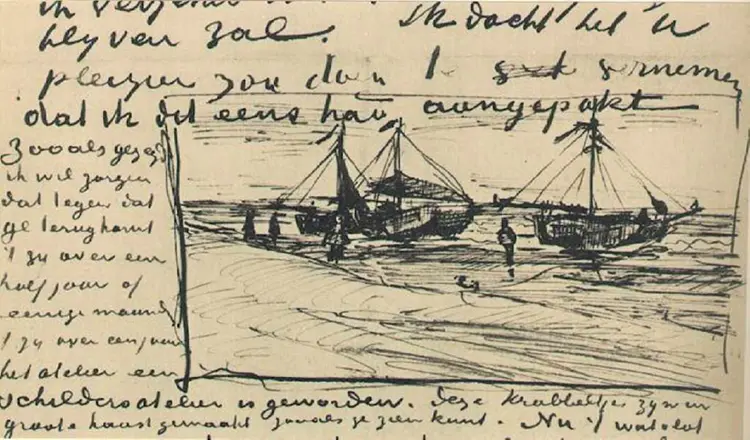 ik
blyven zal. Ik dacht het U
pleizier zou doen te vernemen
dat ik dit eens had aangepakt
Zooals gezegd
ik wil zorgen
dat tegen dat
ge terugkomt
't zy over een
half jaar of
eenige maand
't zy over een jaar
het atelier een
schildersatelier is geworden. Deze krabbeltjes zyn in
groote haast gemaakt zooals ge zien kunt. Nu 't wat vlot